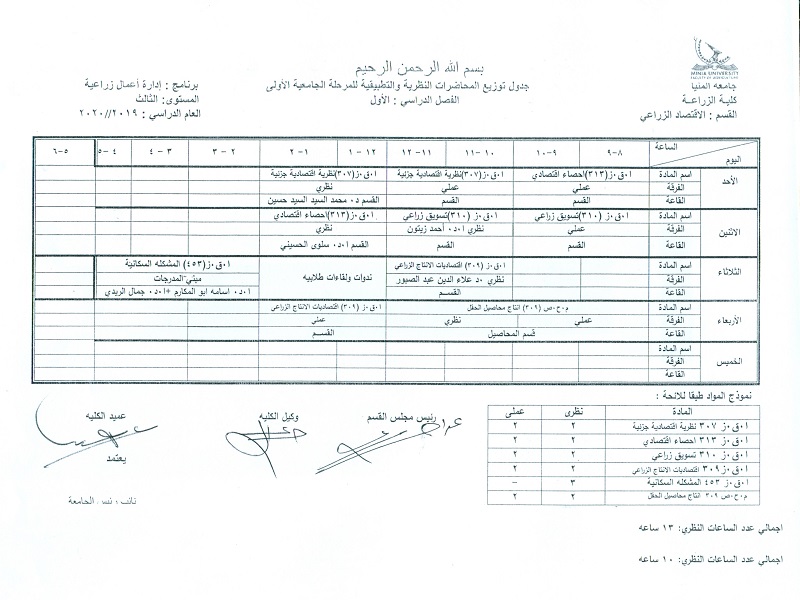 MINIA UNIVERSITY
FACULTY OF AGRICULTURE
جامعه المنيا
كلية الزراعة
القسم : الاقتصاد الزراعي
بسم الله الرحمن الرحيم
جدول توزيع المحاضرات النظرية والتطبيقية للمرحلة الجامعية الأولى
الفصل الدراسي : الأول
برنامج : إدارة أعمال زراعية
المستوى: الثالث
العام الدراسي : ٢٠١٩//٢٠٢٠
الساعة
اليوم
٨-٩ ٩-١٠ ١٠-١١ ١١-١٢ ١٢-١ ١-٢ ٢-٣ ٣-٤ ٤-٥ ٥-٦
الأحد
اسم المادة ا.ق.ز(٣١٣)احصاء اقتصادي ا.ق.ز(٣٠٧)نظرية اقتصادية جزئية ا.ق.ز(٣٠٧)نظرية اقتصادية جزئية
الفرقة عملي عملي نظري
القاعة القسم القسم القسم د. محمد السيد السيد حسين
الاثنين
اسم المادة ا.ق.ز (٣١٠)تسويق زراعي ا.ق.ز (٣١٠)تسويق زراعي ا.ق.ز(٣١٣)احصاء اقتصادي
الفرقة عملي نظري ا.د. أحمد زيتون نظري
القاعة القسم القسم القسم ا.د. سلوى الحسيني
الثلاثاء
اسم المادة ا.ق.ز (٣٠٩) اقتصاديات الانتاج الزراعي ندوات ولقاءات طلابيه ا.ق.ز(٤٥٣) المشكله السكانية
الفرقة نظري د. علاء الدين عبد الصبور مبني المدرجات
القاعة القسم ا.د اسامه ابو المكارم +ا.د. جمال الريدي
الأربعاء
اسم المادة م.ح.ص (٣٠٩) انتاج محاصيل الحقل ا.ق.ز (٣٠٩) اقتصاديات الانتاج الزراعي
الفرقة عملي نظري عملي
القاعة قسم المحاصيل القسم
الخميس
اسم المادة
الفرقة
القاعة
نموذج المواد طبقا للائحة :
المادة نظرى عملى
ا.ق.ز ٣٠٧ نظرية اقتصادية جزئية ٢ ٢
ا.ق.ز ٣١٣ احصاء اقتصادي ٢ ٢
ا.ق.ز ٣١٠ تسويق زراعي ٢ ٢
ا.ق.ز ٣٠٩ اقتصاديات الانتاج الزراعي ٢ ٢
ا.ق.ز ٤٥٣ المشكله السكانية ٣ –
م.ح.ص ٣٠٩ انتاج محاصيل الحقل ٢ ٢
رئيس مجلس القسم
وكيل الكليه
عميد الكليه
يعتمد
نائب رئيس الجامعة
اجمالي عدد الساعات النظري: ١٣ ساعه
اجمالي عدد الساعات النظري: ١٠ ساعه